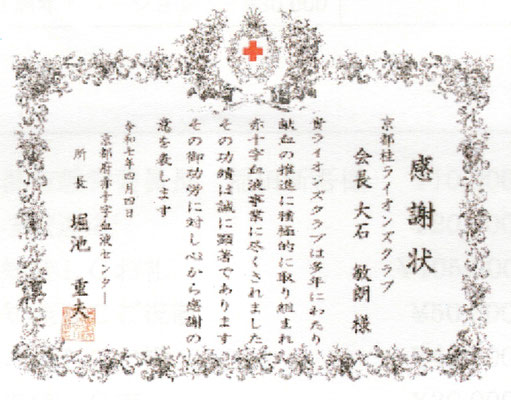 感謝状
京都桂ライオンズクラブ
会長 大石 敏朗 様
貴ライオンズクラブは多年にわたり
献血の推進に積極的に取り組まれ
赤十字血液事業に尽くされました
その功績は誠に顕著であります
その御功労に対し心から感謝の
意を表します
令和七年四月四日
京都府赤十字血液センター
所長 堀池 重夫